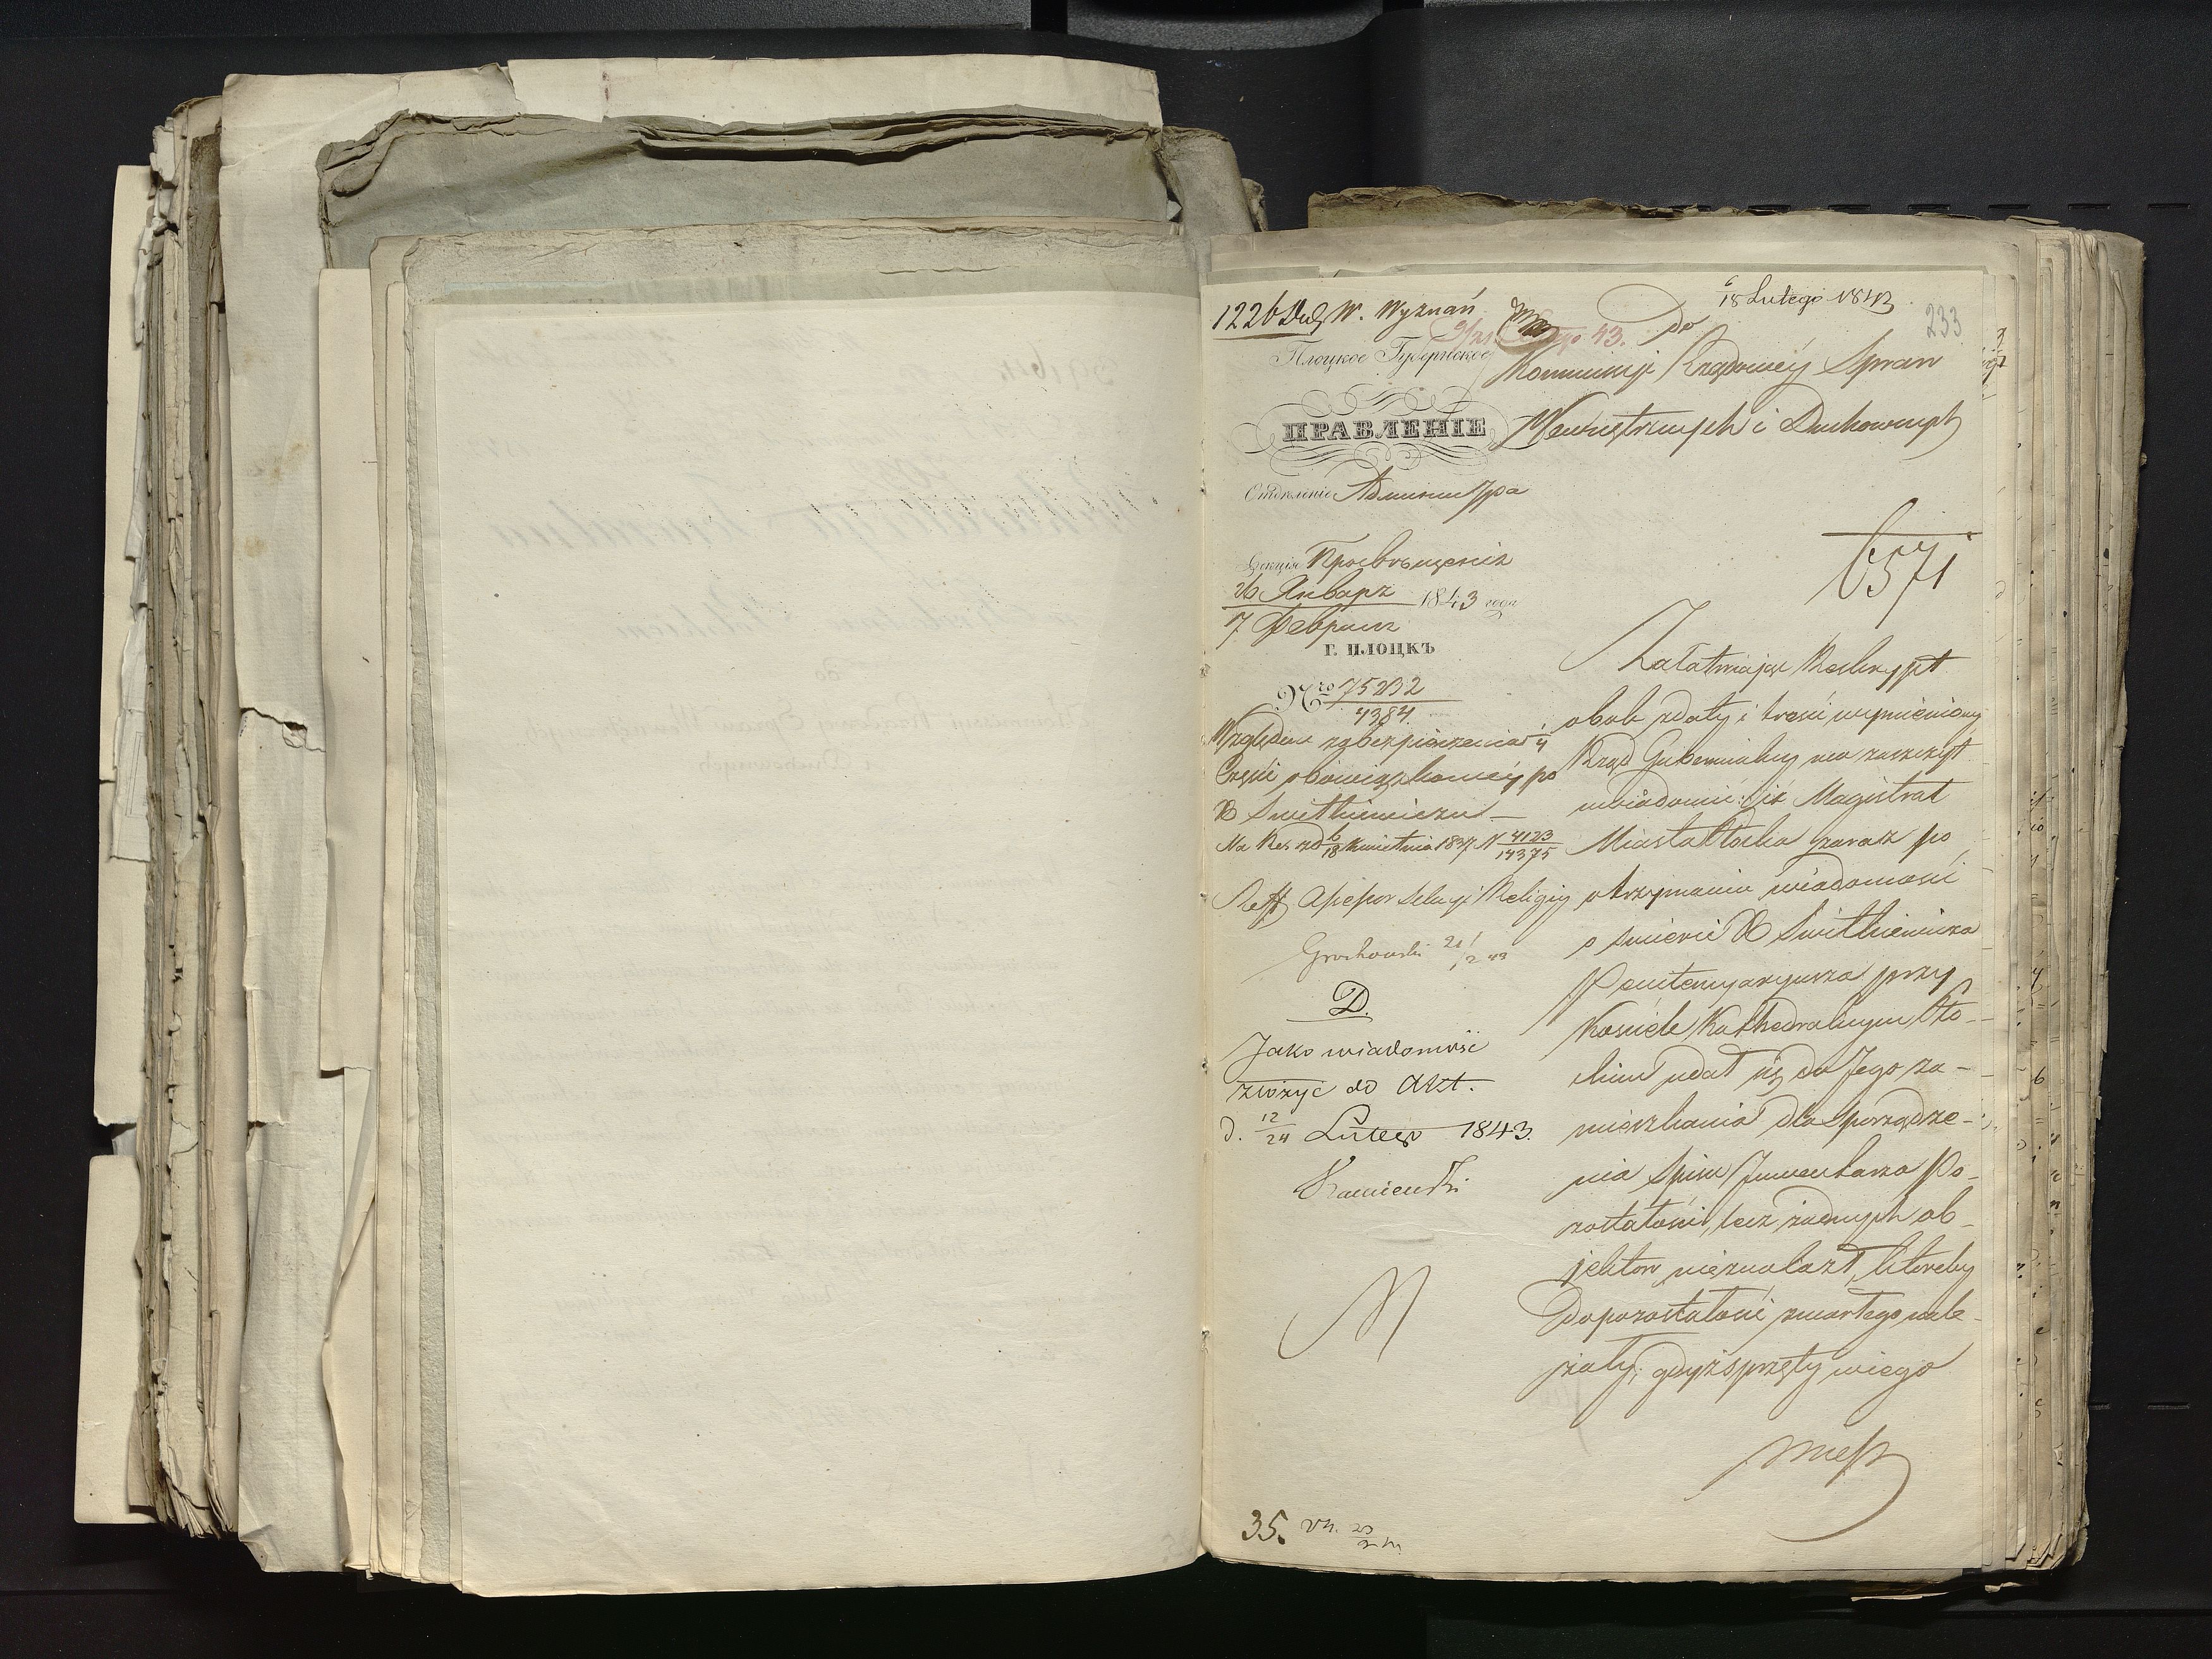 6/18 Lutego 1843
1226 W. Wyznań
9/21 Lutego 43.
233
Плоцкое Губернское
ПРАВЛЕНІЕ
Отдѣленіе Администра
Секція Просвѣщенія
26 Января
7 Февраля 1843 года
Г. ПЛОЦКЪ
Nro 75232/4384
Względem zabezpieczenia 1/4
Części obowiązkowéy po
X Smitkiewiczu
Na Res. z d 6/18 Kwietnia 1837 N 4123/14375
Reff Assessor Sekcyi Religiy
Grochowski 21/2 43
D.
Jako wiadomość
złożyć do Akt.
d. 12/24 Lutego 1843.
Kamieński
35.
do
Kommissyi Rządowéy Spraw
Wewnętrznych i Duchownych
6571
Załatwiając Reskrypt
obok z daty i treści wymieniony
Rząd Gubernialny ma zaszczyt
uwiadomić: iż Magistrat
Miasta Płocka zaraz po
otrzymaniu wiadomości
o śmierci X Smitkiewicza
Penitencyaryusza przy
Kościele Kathedralnym Pło-
ckim udał się do Jego za-
mieszkania dla sporządze-
nia Spisu Inwentarza Po-
zostałości, lecz żadnych ob-
jektow nieznalazł, któreby
do pozostałości zmarłego nale-
żały; gdyż sprzęty w iego
miesz